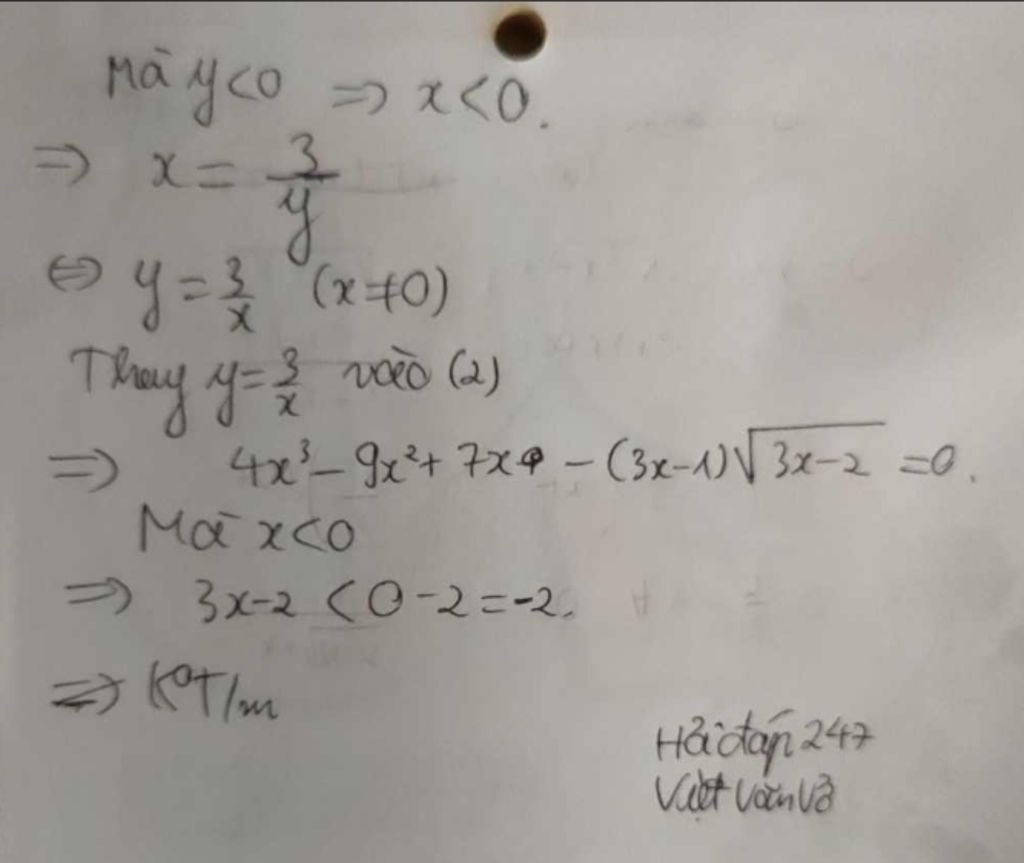 Mà y<0 => x<0.
=> x = 3/y
<=> y = 3/x (x≠0)
Thay y = 3/x vào (2)
=> 4x³ - 9x² + 7x - (3x-1)√(3x-2) = 0.
Mà x<0
=> 3x-2 < 0-2 = -2.
=> K⁰T/m
Hỏi đáp 247
Việt Văn Vở